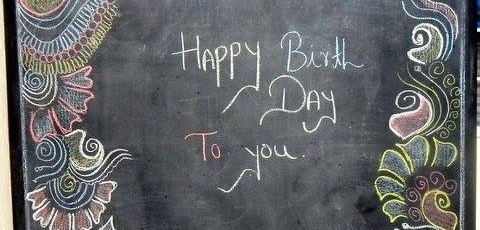 Happy Birth
Day
To you.